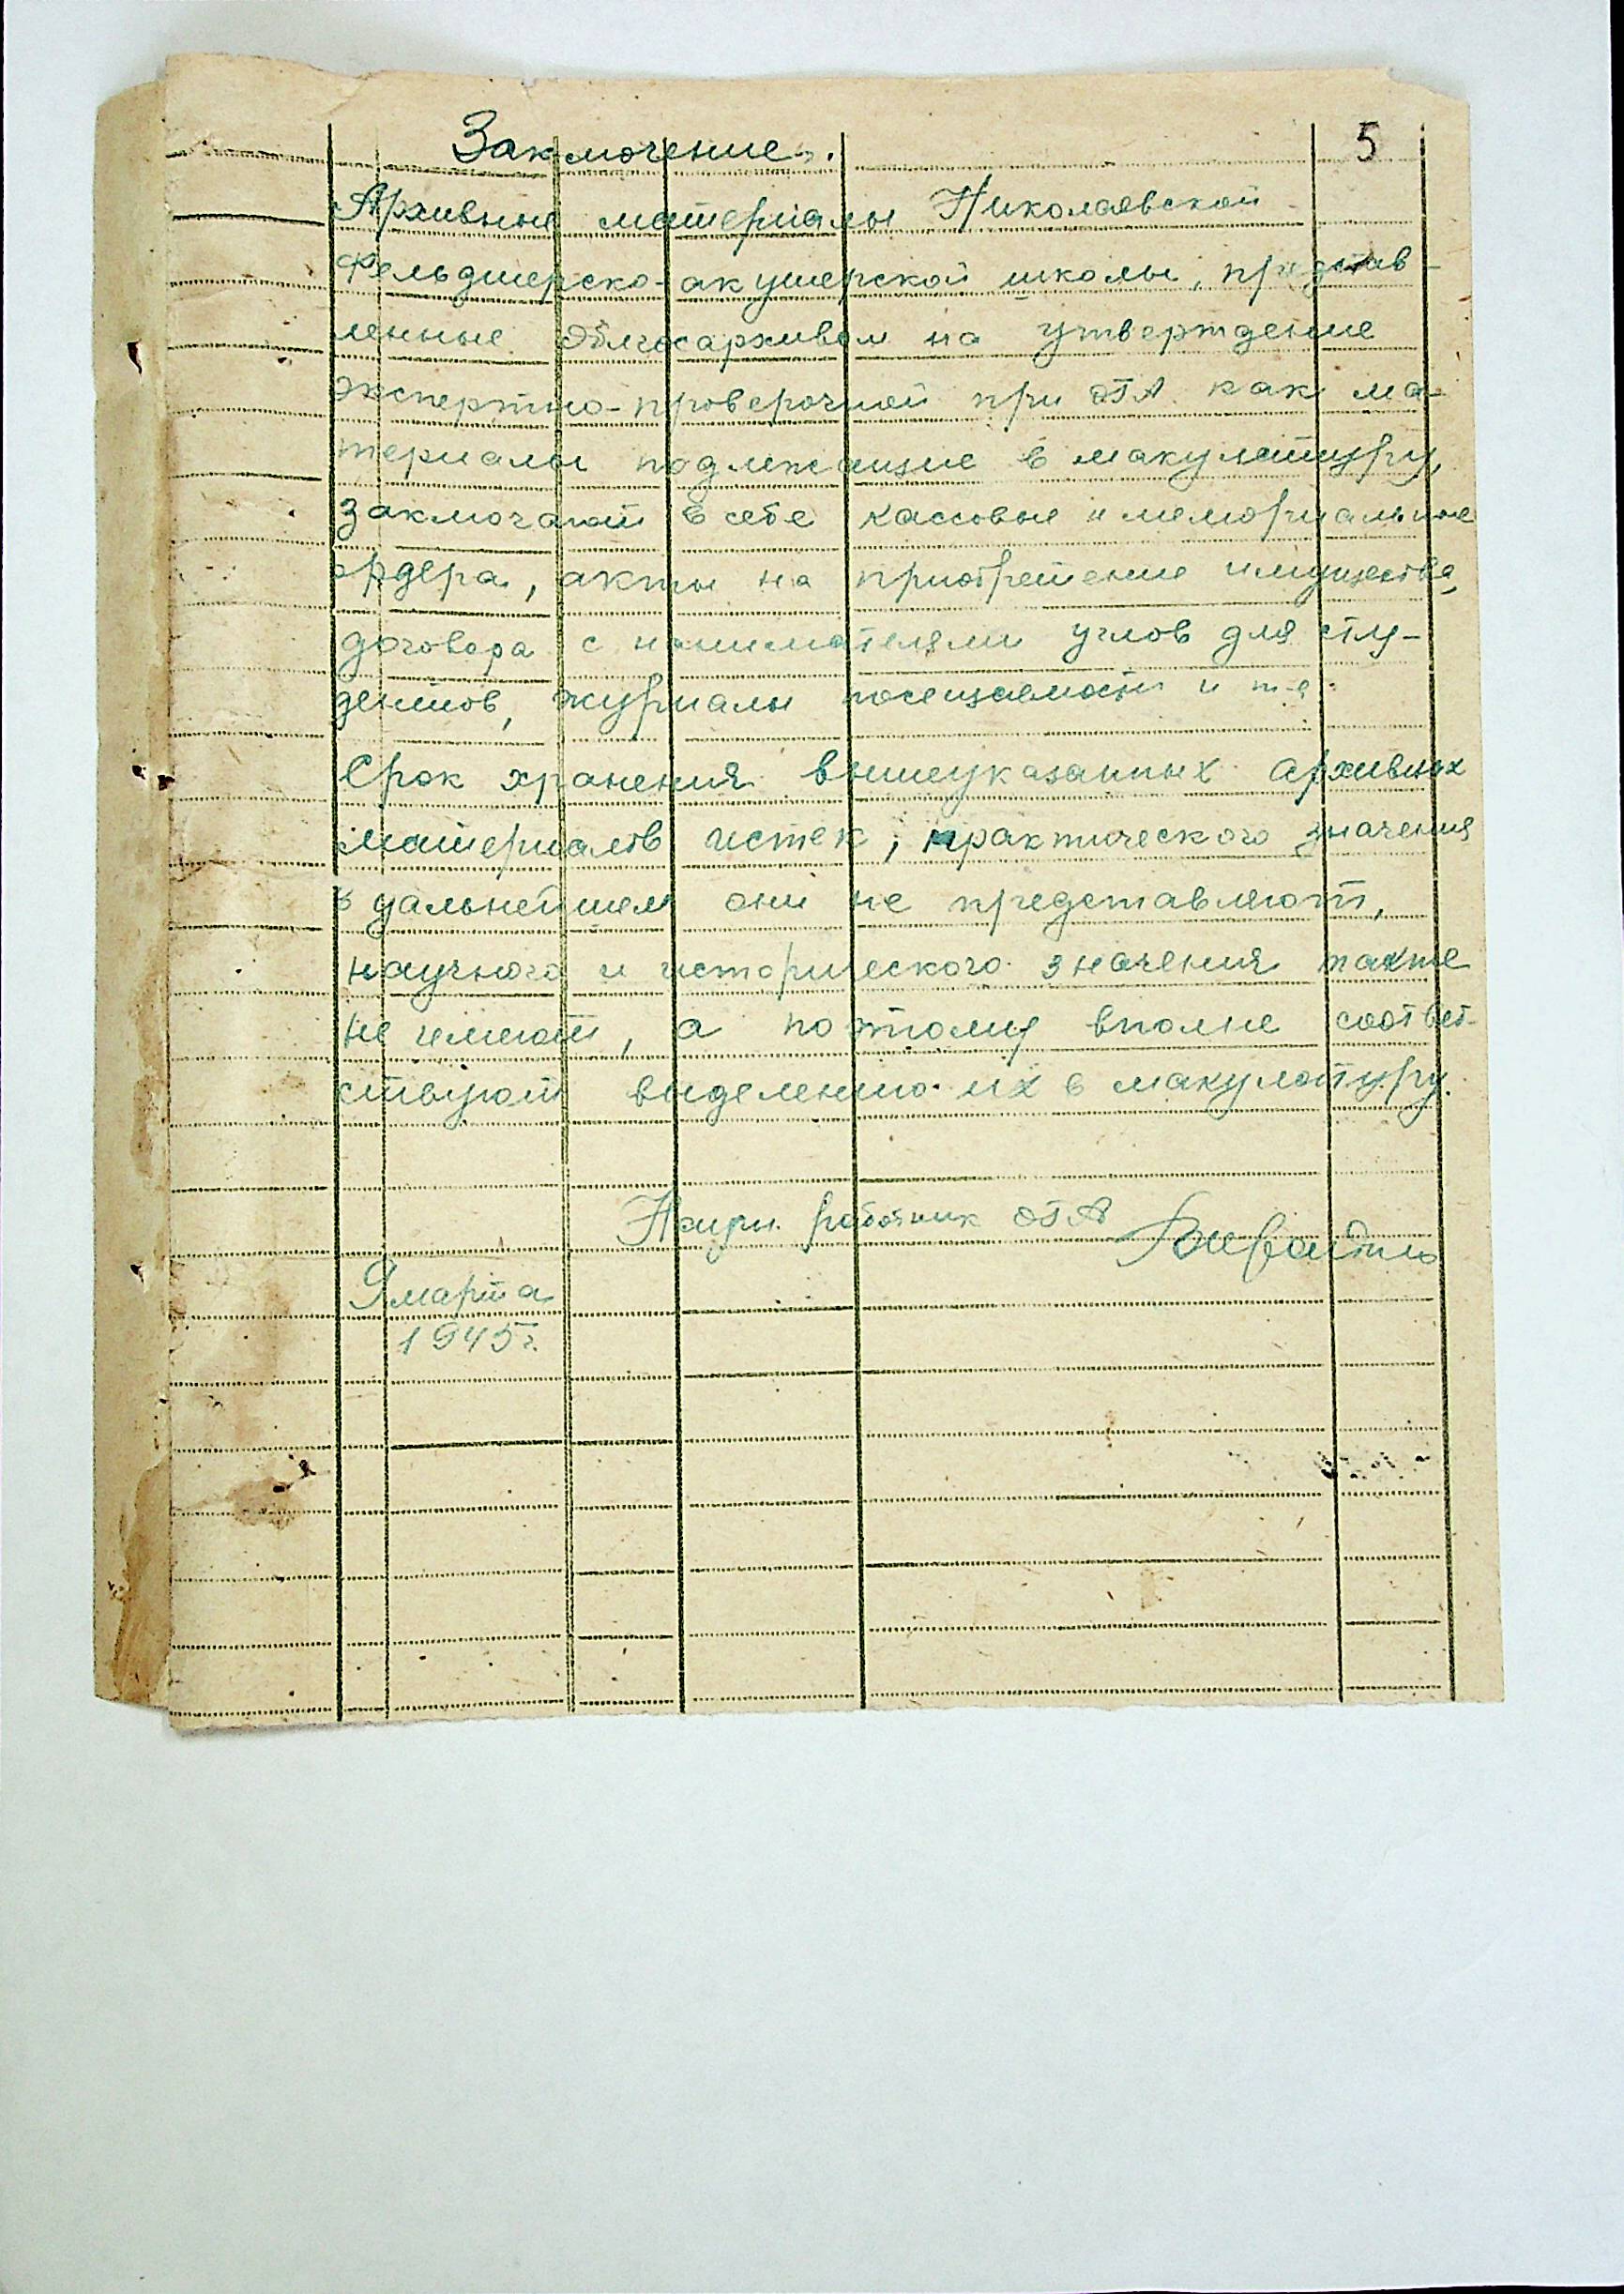 5
Заключение.
Архивные материалы Николаевской
Фельдшерско-акушерской школы, представ-
ленные Облгосархивом на утверждение
экспертно-проверочной при ОГА как ма-
териалы подлежащие в макулатуру,
заключают в себе кассовые и мемориальные
ордера, акты на приобретение имущества,
договора с нанимателями углов для сту-
дентов, журналы посещаемости и т.д.
Срок хранения вышеуказанных архивных
материалов истек, практического значения
в дальнейшем они не представляют,
научного и исторического значения также
не имеют, а поэтому вполне соответ-
ствуют выделению их в макулатуру.
Научн. работник ОГА
9 марта
1945 г.